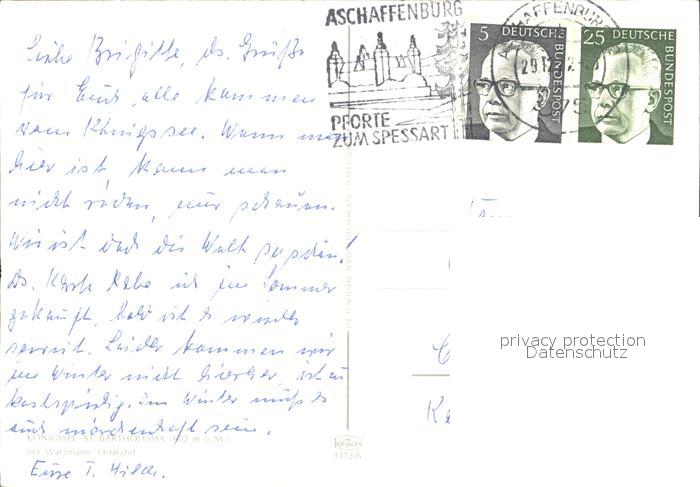 ASCHAFFENBURG
PFORTE
ZUM SPESSART
ASCHAFFENBURG
5 DEUTSCHE BUNDESPOST
25 DEUTSCHE BUNDESPOST
Liebe Brigitte, ds. Grüße
für Euch alle kommen
vom Königssee. Wenn man
hier ist, kann man
nicht reden, nur schauen.
Wie ist doch die Welt so schön!
Ds. Karte habe ich im Sommer
gekauft, bald ist es wieder
soweit. Leider kommen wir
im Winter nicht hierher, ist zu
kostspielig. Im Winter muß es
auch märchenhaft sein.
KÖNIGSSEE - ST. BARTHOLOMÄ 1602 m ü. M.)
mit Watzmann-Ostwand
Eure T. Hilde.
Krüger
privacy protection
Datenschutz